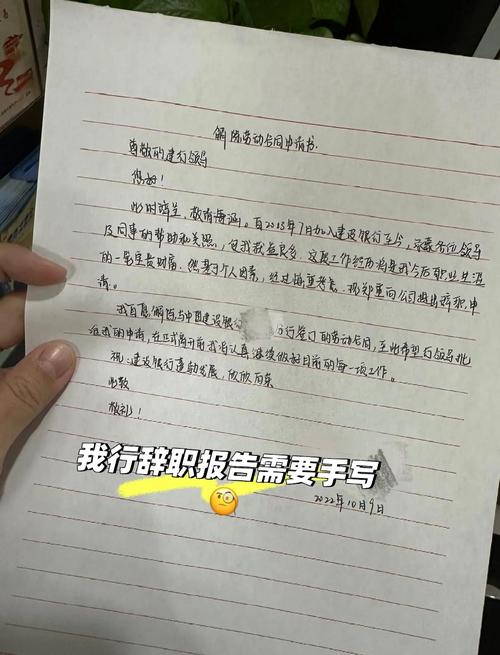 解除劳动合同申请书
尊敬的建行领导
您好！
此时辞呈，敬请海涵。自2015年7日加入建设银行至今，承蒙各位领导
及同事的帮助和关照，使我获益良多，这段工作经历将是我今后职业生涯
的一笔宝贵财富。然基于个人因素，经过慎重考虑，现郑重向公司提出辞职申
请。
我自愿解除与中国建设银行 分行签订的劳动合同，至此希望行领导批
准我的申请，在正式离开前我将认真继续做好目前的每一项工作。
祝：建设银行蓬勃发展，欣欣向荣
此致
敬礼！
我行辞职报告需要手写
2022年10月9日